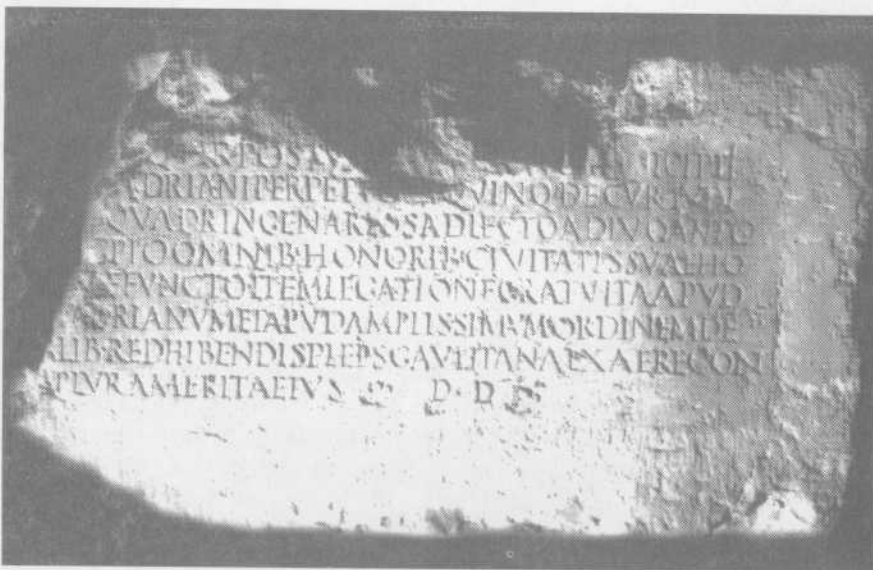 POS ICIPII
DRIANI PERPET QVINQ DECVRIIS
QVADRINGENARIOS ADLECTO A DIVO ANTO
PIO OMNIB HONORIB CIVITATIS SVAE HO
FVNCTO ITEM LEGATIONE GRATVITA APVD
RIANVM ET APVD AMPLISSIMVM ORDINEM DE
LIB REDHIBENDIS PLEPS GAVLITANA EX AERE CON
PLVRA MERITA EIVS D · D